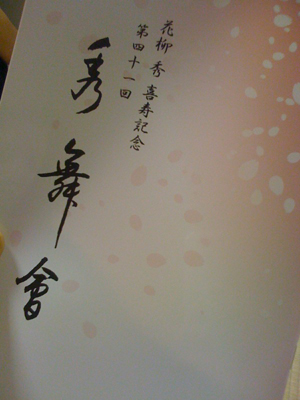 花柳 秀 喜寿記念
第四十一回
秀舞會